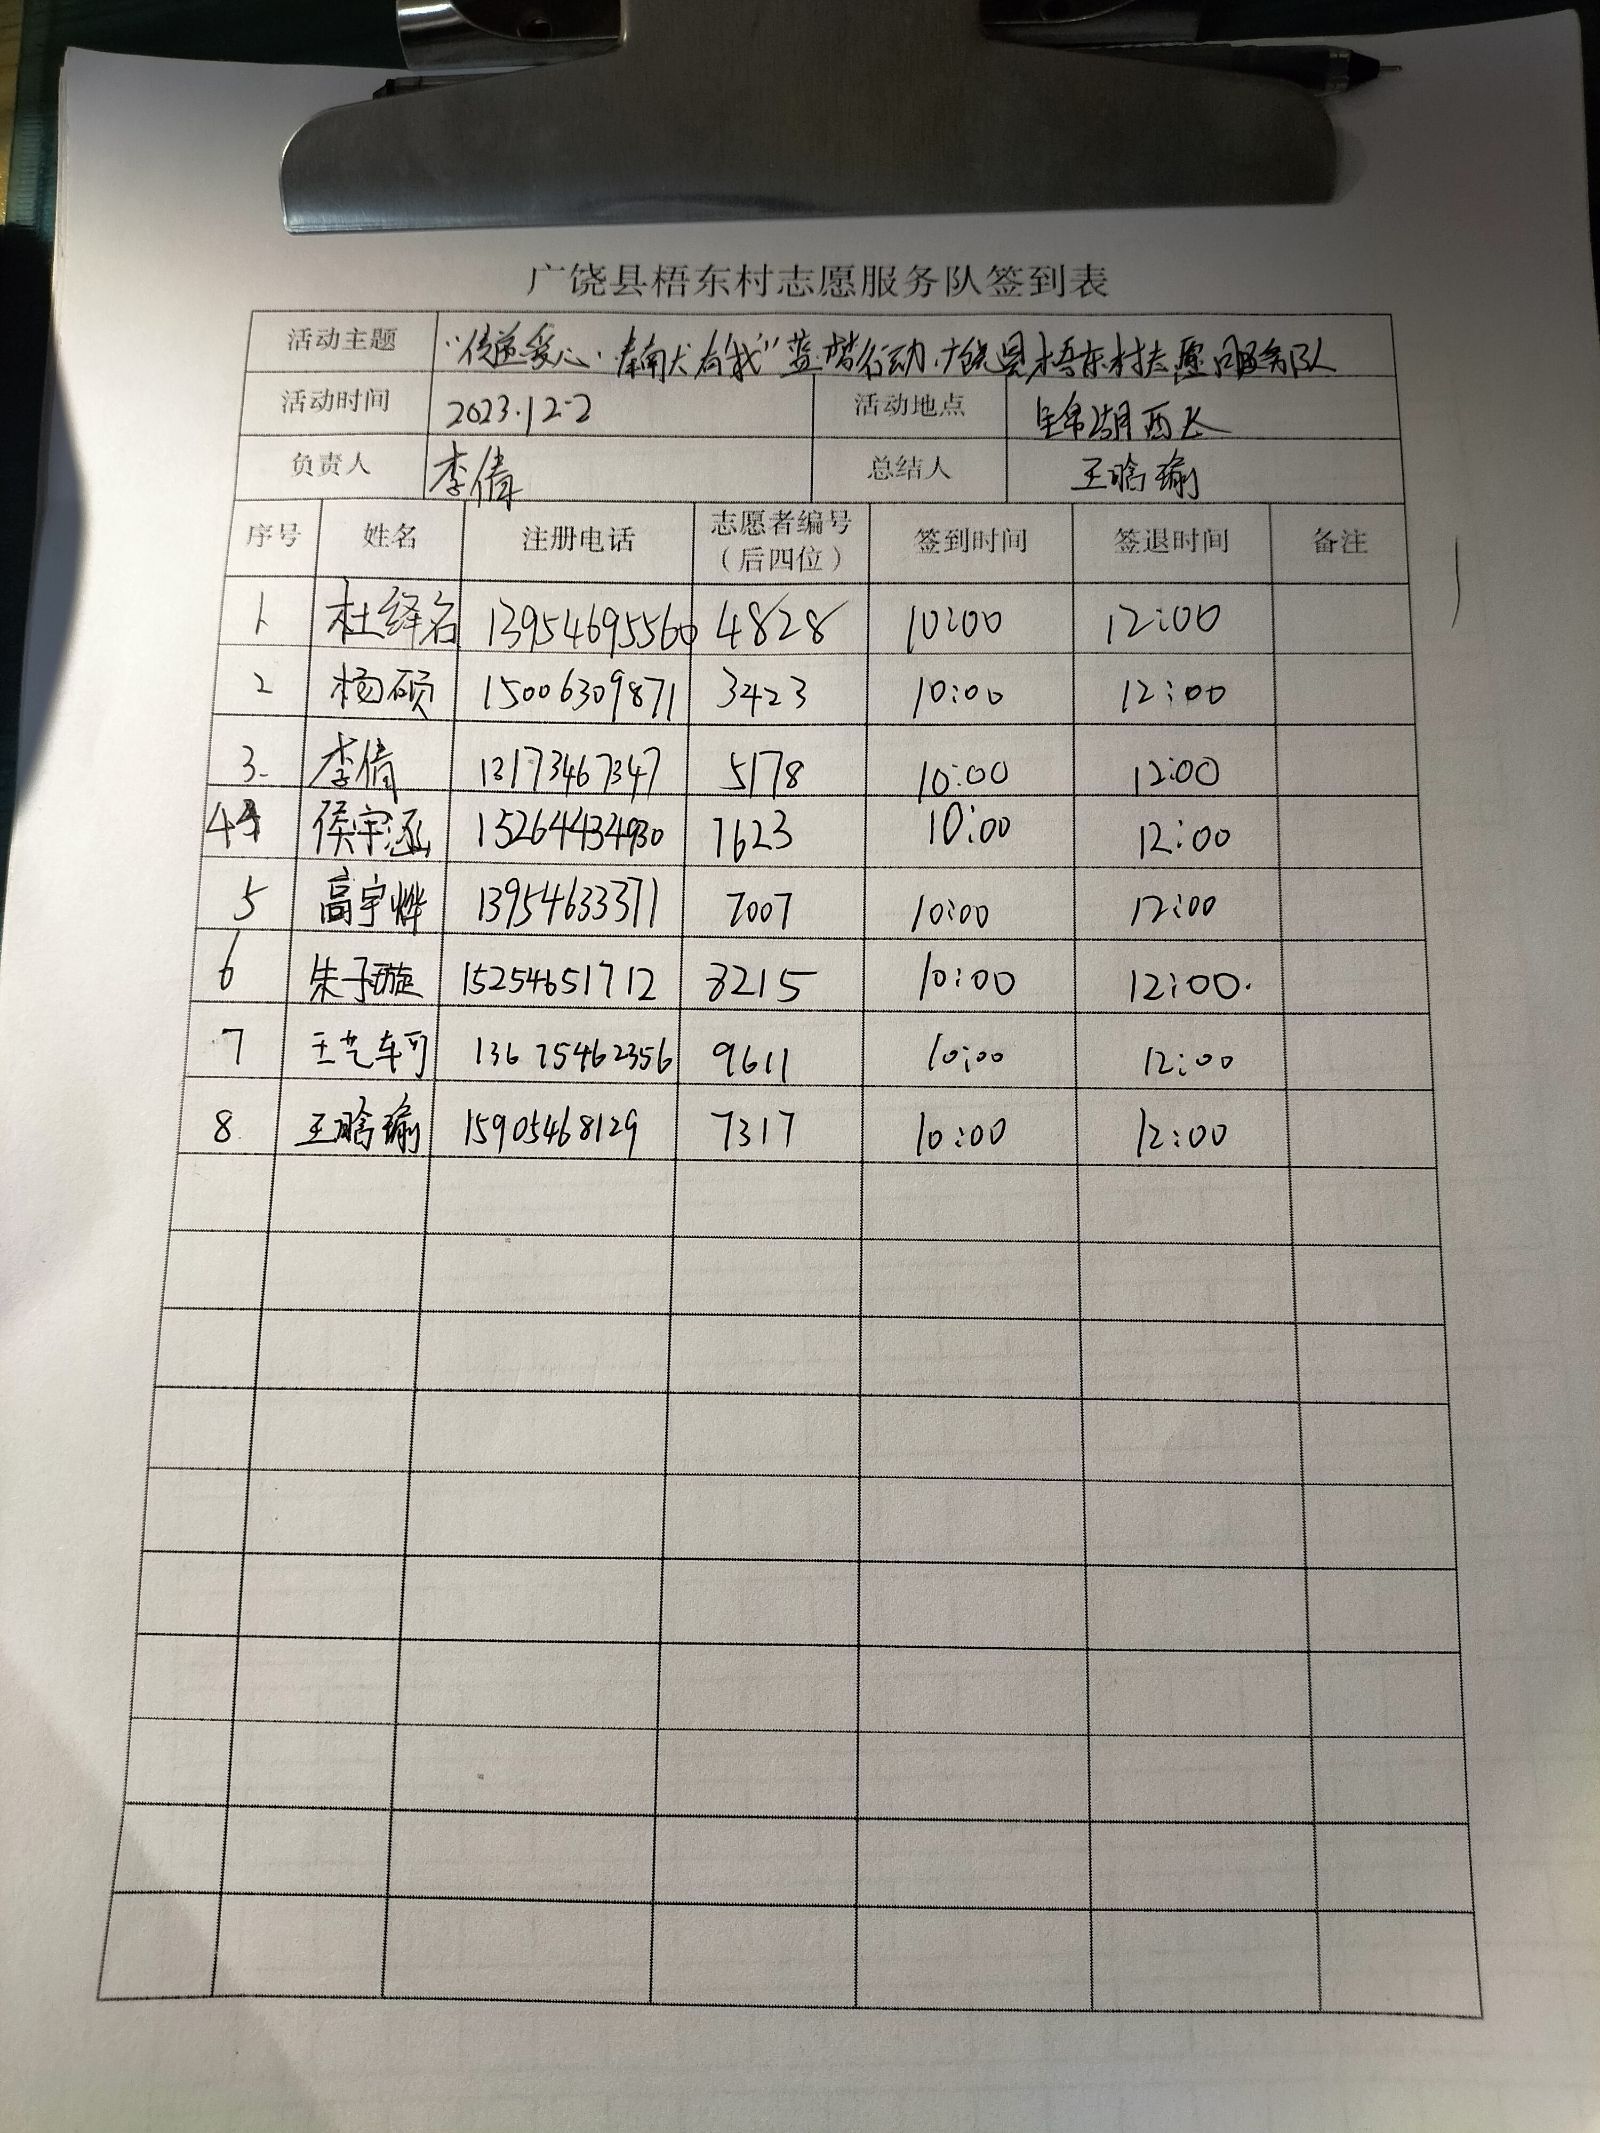 广饶县梧东村志愿服务队签到表
活动主题 "传递爱心·有我"蓝 行动·广饶县梧东村志愿服务队
活动时间 2023.12.2 活动地点 湖西
负责人 李倩 总结人 王晗瑜
序号 姓名 注册电话 志愿者编号（后四位） 签到时间 签退时间 备注
1 杜绎名 13954695560 4828 10:00 12:00
2 杨硕 15006309871 3423 10:00 12:00
3. 李倩 13173467347 5178 10:00 12:00
4 侯宇涵 15264434930 7623 10:00 12:00
5 高宇烨 13954633371 7007 10:00 12:00
6 朱子璇 15254651712 8215 10:00 12:00.
7 王艺轲 13675462356 9611 10:00 12:00
8. 王晗瑜 15905468129 7317 10:00 12:00